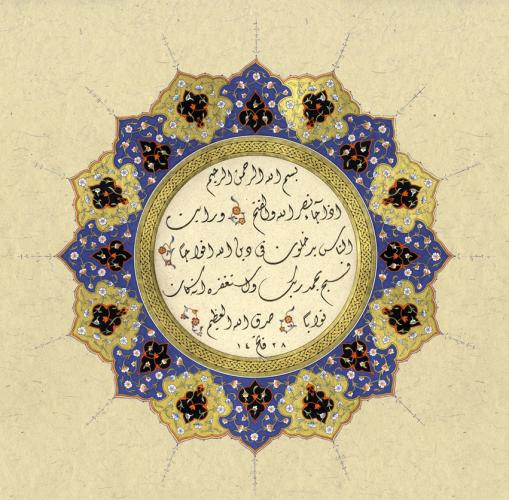 بسم الله الرحمن الرحيم
اذا جاء نصر الله والفتح ورايت
الناس يدخلون في دين الله افواجا
فسبح بحمد ربك واستغفره انه كان
توابا صدق الله العظيم
١٤ ٢٨